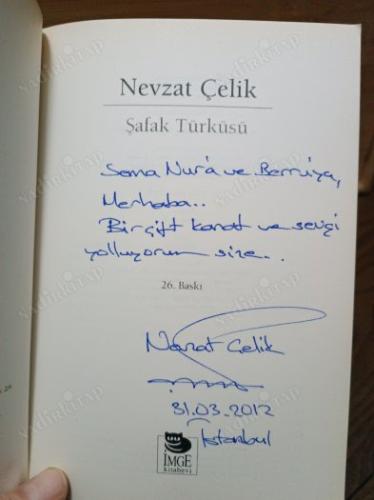 Nevzat Çelik
Şafak Türküsü
Sema Nur'a ve Berru'ya,
Merhaba..
Bir çift kanat ve sevgi
yolluyorum size..
26. Baskı
Nevzat Çelik
31.03.2012
İstanbul
İMGE
kitabevi